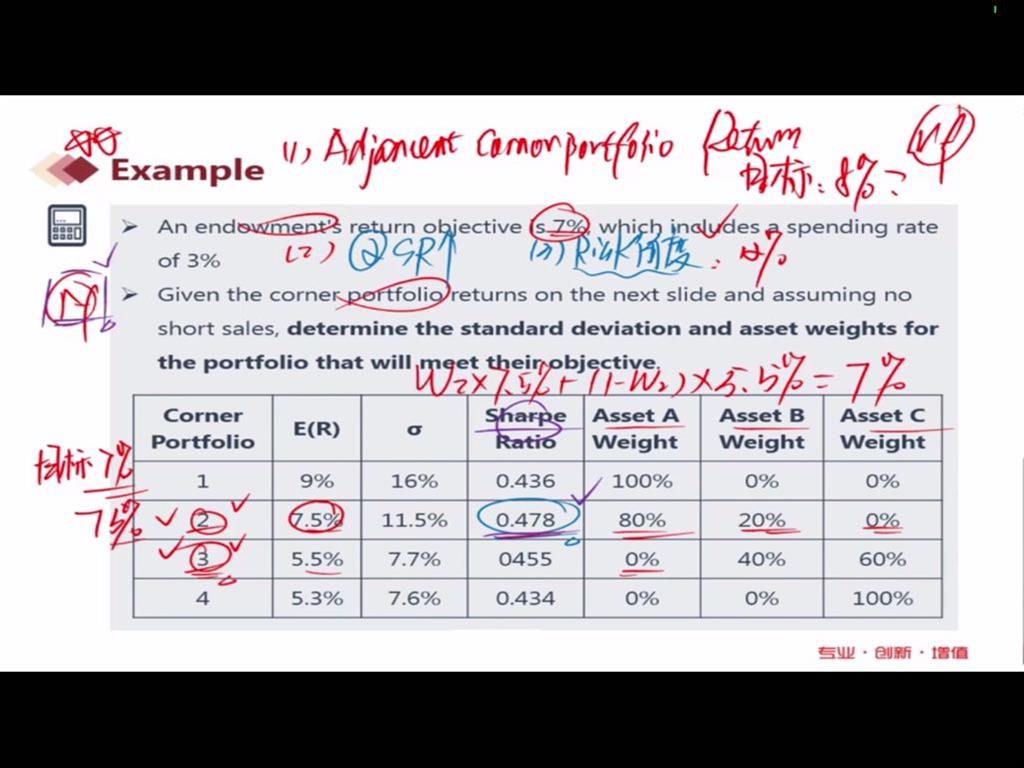 (1), Adjancent Cornor portfolio Return
目标: 8%
Example
An endowment's return objective is 7%, which includes a spending rate
of 3%
(2) ② SR↑
(3) Risk
Given the corner portfolio returns on the next slide and assuming no
short sales, determine the standard deviation and asset weights for
the portfolio that will meet their objective.
W₂×7.5%+(1-W₂)×5.5%=7%
Corner Portfolio E(R) σ Sharpe Ratio Asset A Weight Asset B Weight Asset C Weight
目标 7%
1 9% 16% 0.436 100% 0% 0%
7.5%
2 7.5% 11.5% 0.478 80% 20% 0%
3 5.5% 7.7% 0455 0% 40% 60%
4 5.3% 7.6% 0.434 0% 0% 100%
专业·创新·增值